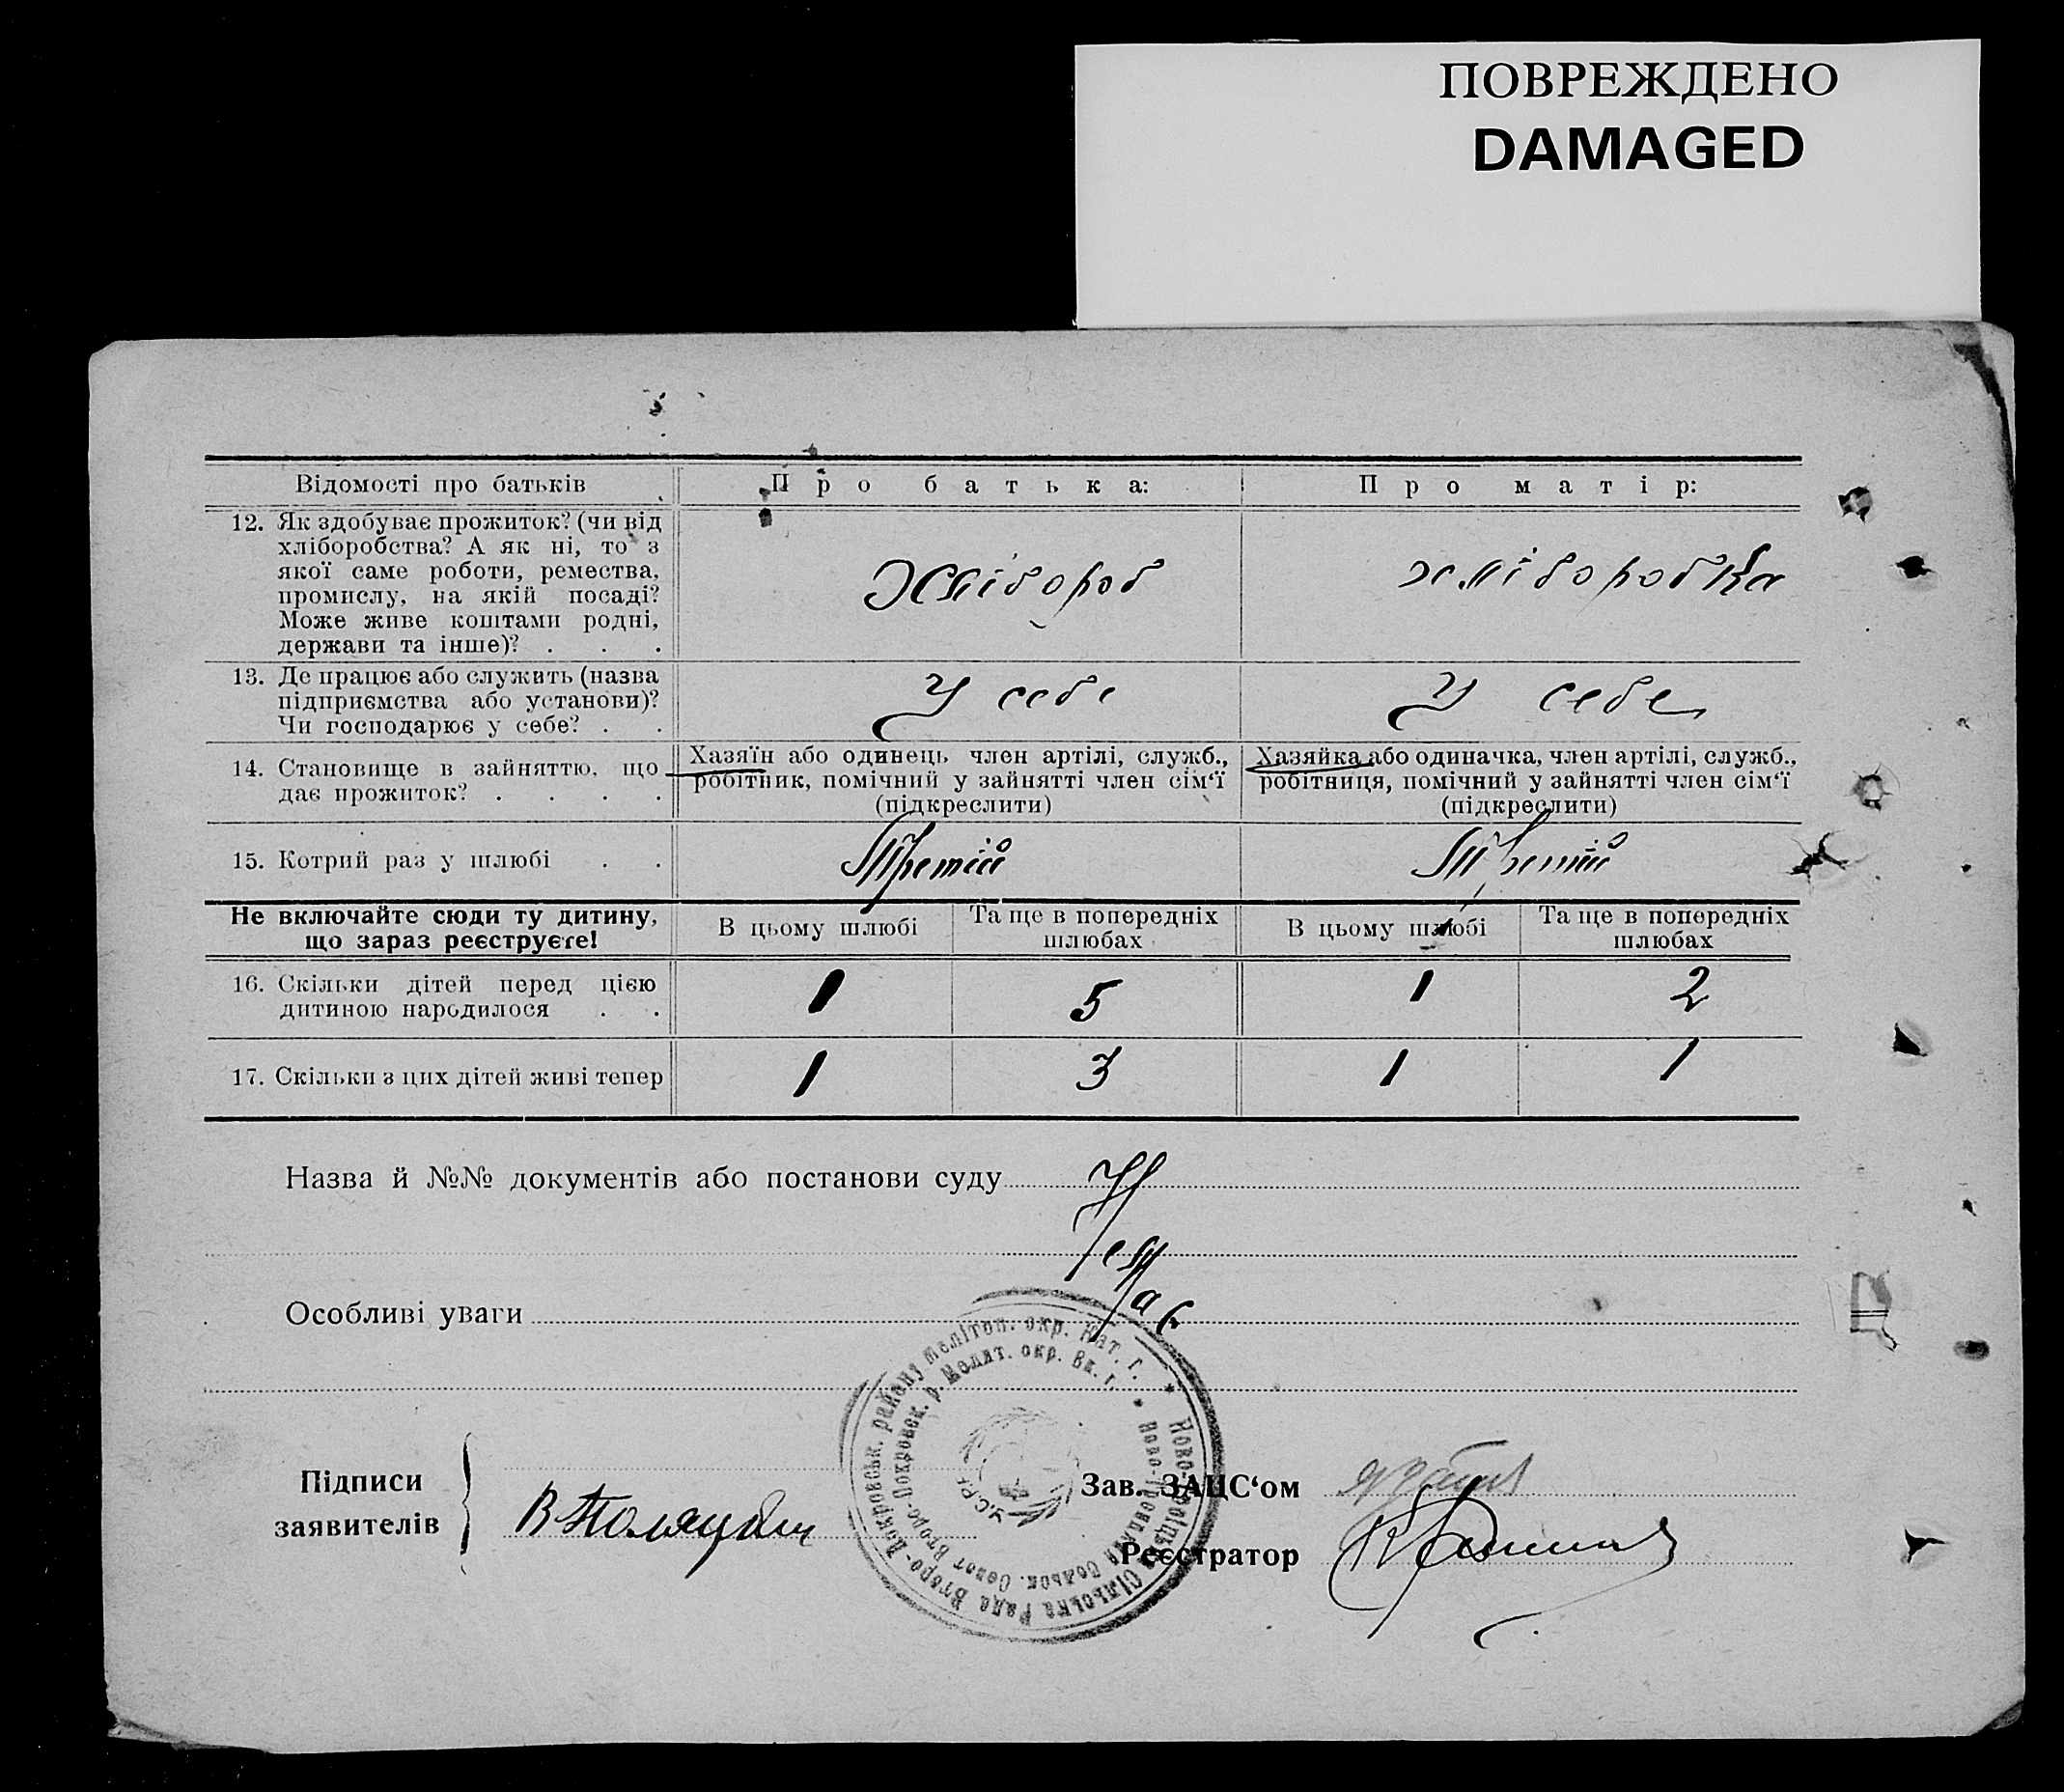 ПОВРЕЖДЕНО
DAMAGED
Відомості про батьків
Про батька:
Про матір:
12. Як здобуває прожиток? (чи від
хліборобства? А як ні, то з
якої саме роботи, ремества,
промислу, на якій посаді?
Може живе коштами родні,
держави та інше)? . . .
Хлібороб
хліборобка
13. Де працює або служить (назва
підприємства або установи)?
Чи господарює у себе? . .
У себе
У себе
14. Становище в зайняттю, що
дає прожиток? . . . .
Хазяїн або одинець член артілі, служб.,
робітник, помічний у зайнятті член сім‘ї
(підкреслити)
Хазяйка або одиначка, член артілі, служб.,
робітниця, помічний у зайнятті член сім‘ї
(підкреслити)
15. Котрий раз у шлюбі . .
Третій
Третій
Не включайте сюди ту дитину,
що зараз реєструєте!
В цьому шлюбі
Та ще в попередніх
шлюбах
В цьому шлюбі
Та ще в попередніх
шлюбах
16. Скільки дітей перед цією
дитиною народилося . .
1
5
1
2
17. Скільки з цих дітей живі тепер
1
3
1
1
Назва й №№ документів або постанови суду
Немає
Особливі уваги
Підписи
заявителів
Зав. ЗАЦС‘ом
Реєстратор
Сільська Рада Второ-Покровськ. району Мелітоп. окр. Кат. г. *
Второ-Покровск. р. Мелит. окр. Ек. г. *
У.С.Р.Р.